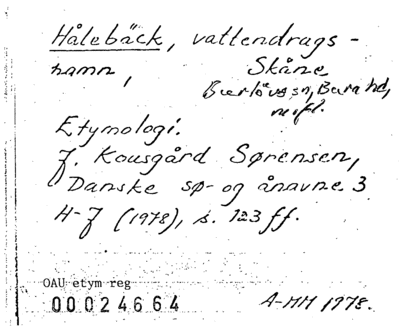 Hålebäck, vattendrags-
namn, Skåne
Burlövs sn, Bara hd,
m.fl.
Etymologi.
J. Kousgård Sørensen,
Danske sø- og ånavne 3
H-J (1978), s. 123 ff.
OAU etym reg
00024664 A-MH 1978.